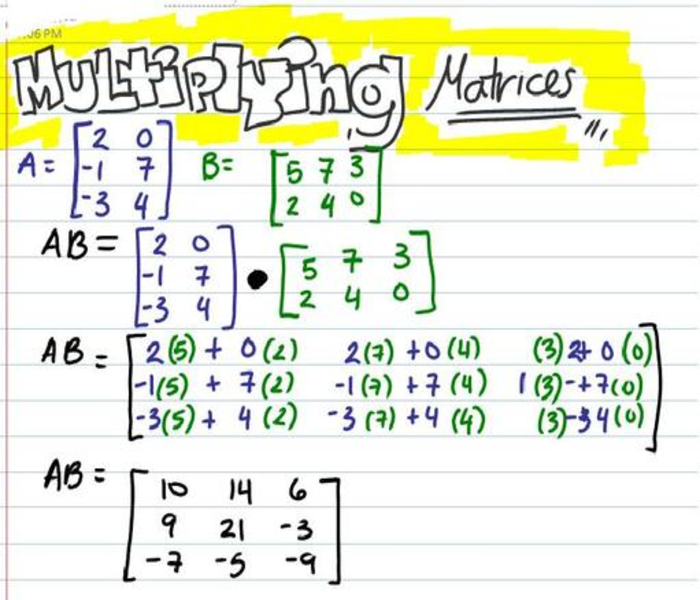 :06 PM
Multiplying Matrices
A = [2 0
-1 7
-3 4] B = [5 7 3
2 4 0]
AB = [2 0
-1 7
-3 4] • [5 7 3
2 4 0]
AB = [2(5) + 0(2) 2(7) + 0(4) (3)2+ 0(0)
-1(5) + 7(2) -1(7) + 7(4) 1(3)-+7(0)
-3(5) + 4(2) -3(7) + 4(4) (3)-34(0)]
AB = [10 14 6
9 21 -3
-7 -5 -9]